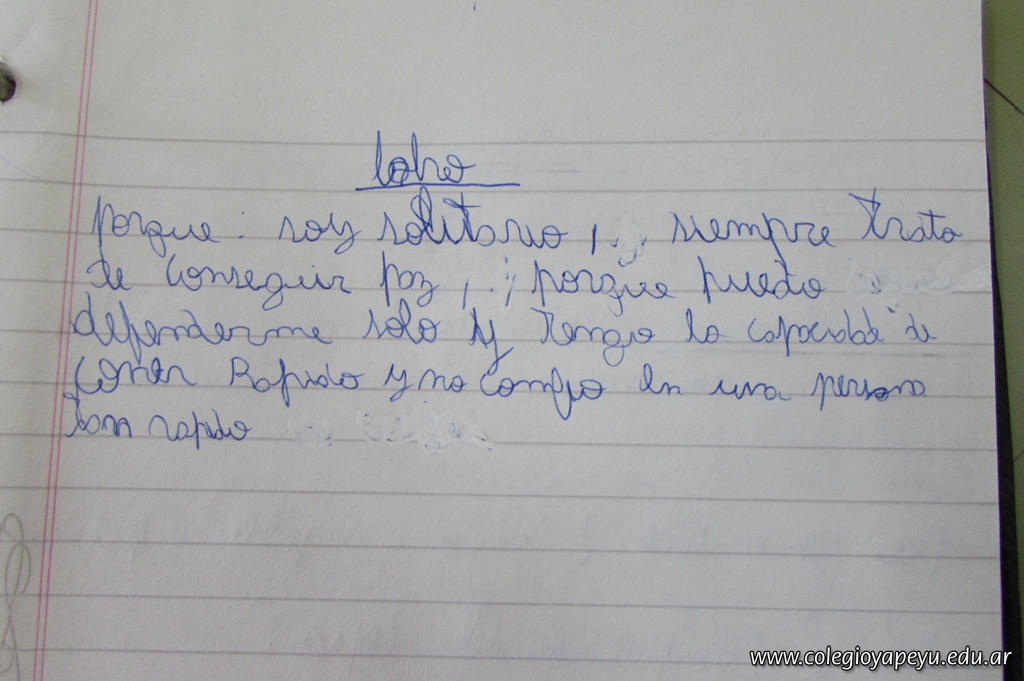 lobo
porque: soy solitario, siempre trata
de conseguir paz, porque puedo
dependerme solo y tengo la capacidad de
correr Rapido y no confio en una persona
tan rapido
www.colegioyapeyu.edu.ar